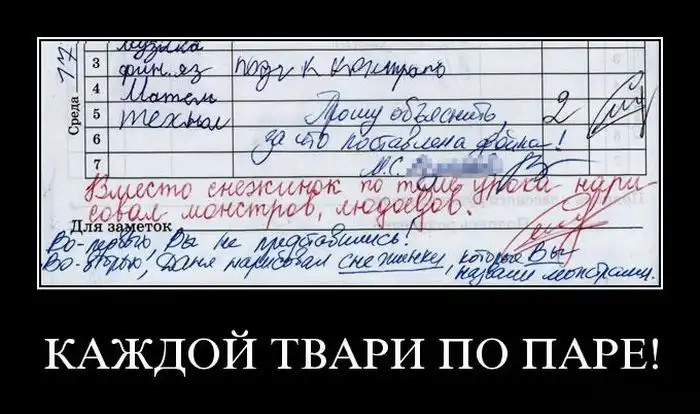 17
Среда
музыка
3 фин. яз подг к контрало
4 Матем
5 технол Прошу объяснить, 2
6 за что поставлена двойка!
7 М.С.
Вместо снежинок по теме урока нари-
совал монстров, людоедов.
Для заметок
Во-первых, Вы не представились!
Во-вторых, Даня нарисовал снежинки, которые Вы
назвали монстрами.
КАЖДОЙ ТВАРИ ПО ПАРЕ!